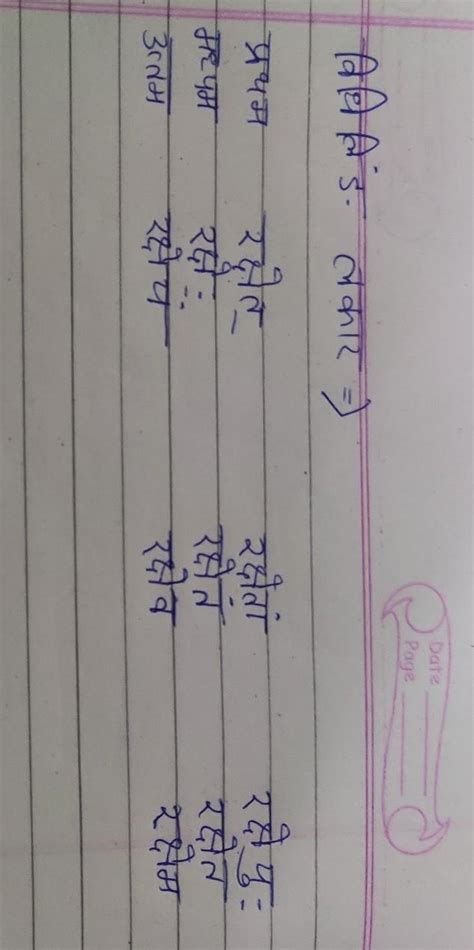 Date
Page
विधिलिंङ लकार ⇒
प्रथम रक्षेत् रक्षेतां रक्षेयुः
मध्यम रक्षेः रक्षेतं रक्षेत
उत्तम रक्षेय रक्षेव रक्षेम